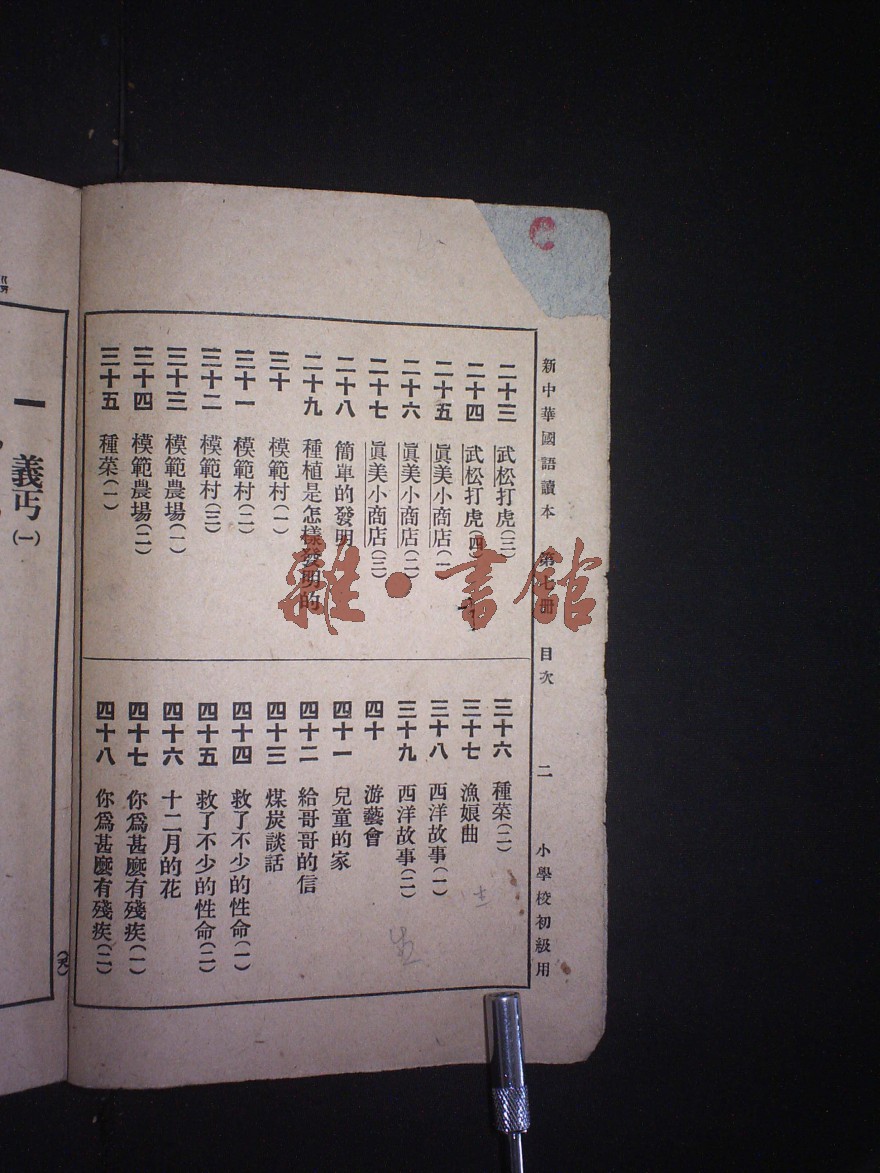 新中華國語讀本　第七冊　目次　二　小學校初級用
二十三　武松打虎(三)
二十四　武松打虎(四)
二十五　眞美小商店(一)
二十六　眞美小商店(二)
二十七　眞美小商店(三)
二十八　簡單的發明
二十九　種植是怎樣發明的
三十　模範村(一)
三十一　模範村(二)
三十二　模範村(三)
三十三　模範農場(一)
三十四　模範農場(二)
三十五　種菜(一)
三十六　種菜(二)
三十七　漁娘曲
三十八　西洋故事(一)
三十九　西洋故事(二)
四十　游藝會
四十一　兒童的家
四十二　給哥哥的信
四十三　煤炭談話
四十四　救了不少的性命(一)
四十五　救了不少的性命(二)
四十六　十二月的花
四十七　你爲甚麼有殘疾(一)
四十八　你爲甚麼有殘疾(二)
一　義丐(一)
雜·書館